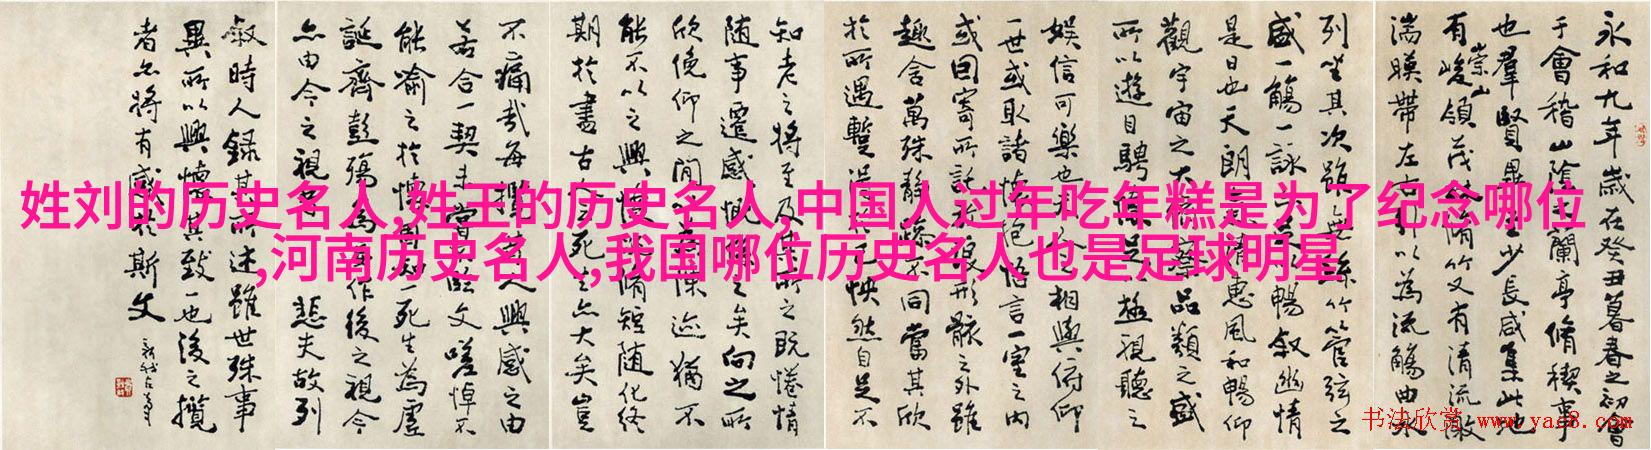 姓刘的历史名人,姓王的历史名人,中国人过年吃年糕是为了纪念哪位
,河南历史名人,我国哪位历史名人也是足球明星
永和九年歲在癸丑暮春之初會
于會稽山陰之蘭亭脩稧事
也羣賢畢至少長咸集此地
有崇山峻領茂林脩竹又有清流激
湍暎帶左右引以為流觴曲水
列坐其次雖無絲竹管弦之
盛一觴一詠亦足以暢敘幽情
是日也天朗氣清惠風和暢仰
觀宇宙之大俯察品類之盛
所以遊目騁懷足以極視聽之
娛信可樂也夫人之相與俯仰
一世或取諸懷抱悟言一室之內
或因寄所託放浪形骸之外雖
趣舍萬殊靜躁不同當其欣
於所遇蹔得於己怏然自足不
知老之將至及其所之既惓情
隨事遷感慨係之矣向之所
欣俛仰之閒以為陳迹猶不
能不以之興懷況脩短隨化終
期於盡古人云死生亦大矣豈
不痛哉每攬昔人興感之由
若合一契未嘗不臨文嗟悼不
能喻之於懷固知一死生為虛
誕齊彭殤為妄作後之視今
亦由今之視昔悲夫故列
敘時人錄其所述雖世殊事
異所以興懷其致一也後之攬
者亦將有感於斯文
书法欣赏 www.yac8.com